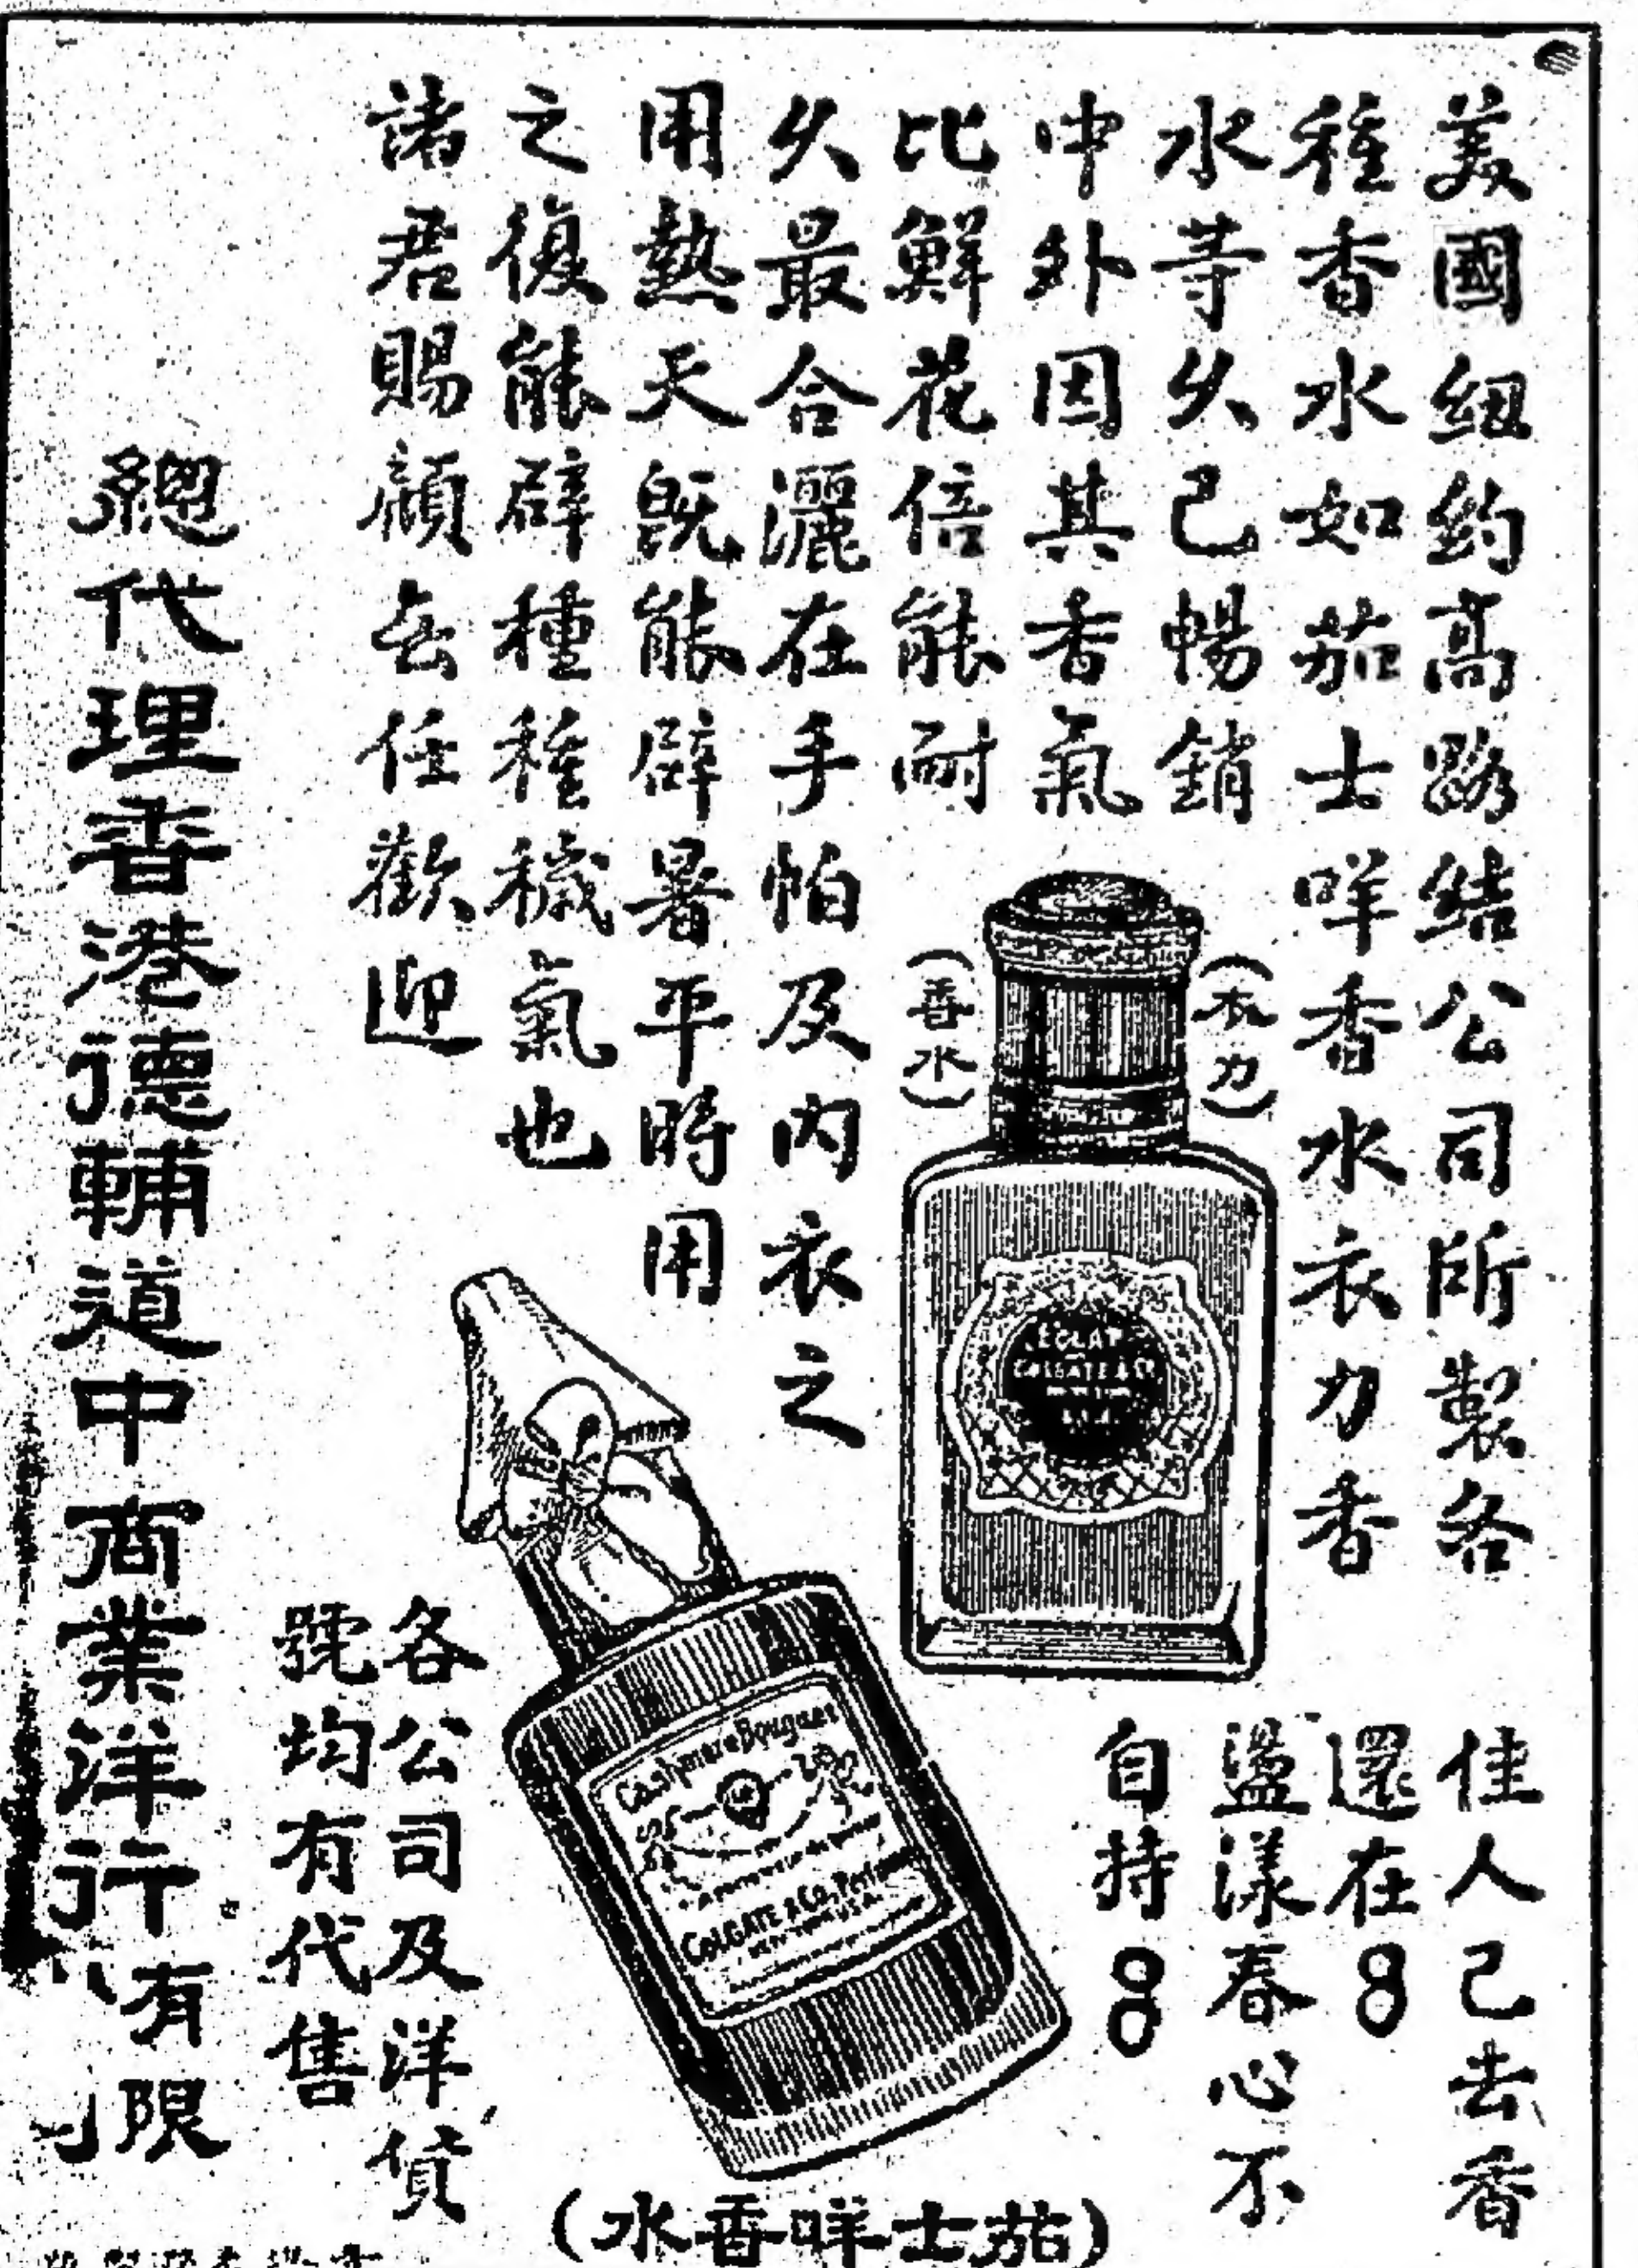 美國紐約高路結公司所製各
種香水如茄士咩香水衣力香
水等久已暢銷
中外因其香氣
比鮮花倍能耐
久最合灑在手帕及內衣之
用熱天旣能辟暑平時用
之復能辟種種穢氣也
諸君賜顧無任歡迎
(衣力)
(香水)
ECLAT
COLGATE & CO.
佳人已去香
還在
盪漾春心不
自持
Cashmere Bouquet
COLGATE & Co. Perfumers
NEW YORK U.S.A.
(茄士咩香水)
各公司及洋貨
號均有代售
總代理香港德輔道中商業洋行有限